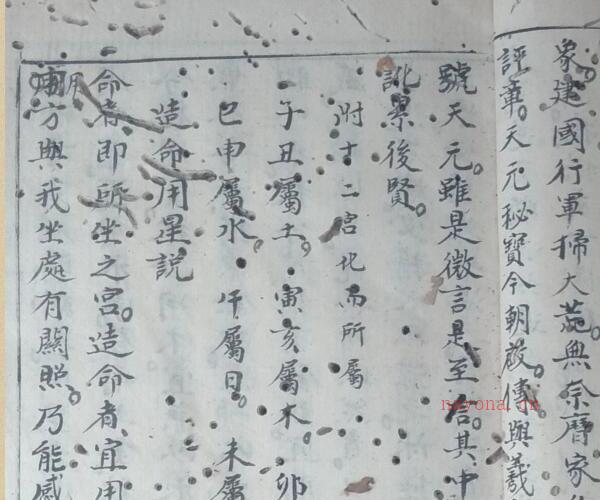 象建國行軍掃大蒞無奈曆家
評章天元秘寶今朝啟傳與義
號天元雖是微言是至言其中
訛累後賢
附十二宮化曜所屬
子丑屬土寅亥屬木卯
巳申屬水午屬日未屬
造命用星説
命者即所坐之宮造命者宜用
方與我坐處有關照乃能感
nayona.cn